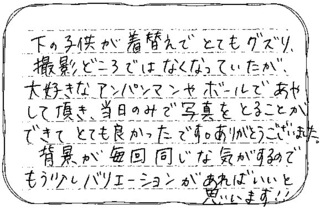 下の子供が着替えでとてもグズり、
撮影どころではなくなっていたが、
大好きなアンパンマンやボールであや
して頂き、当日のみで写真をとることが
できてとても良かったです。ありがとうございました。
背景が毎回同じな気がするので
もう少しバリエーションがあればいいと
思います!!